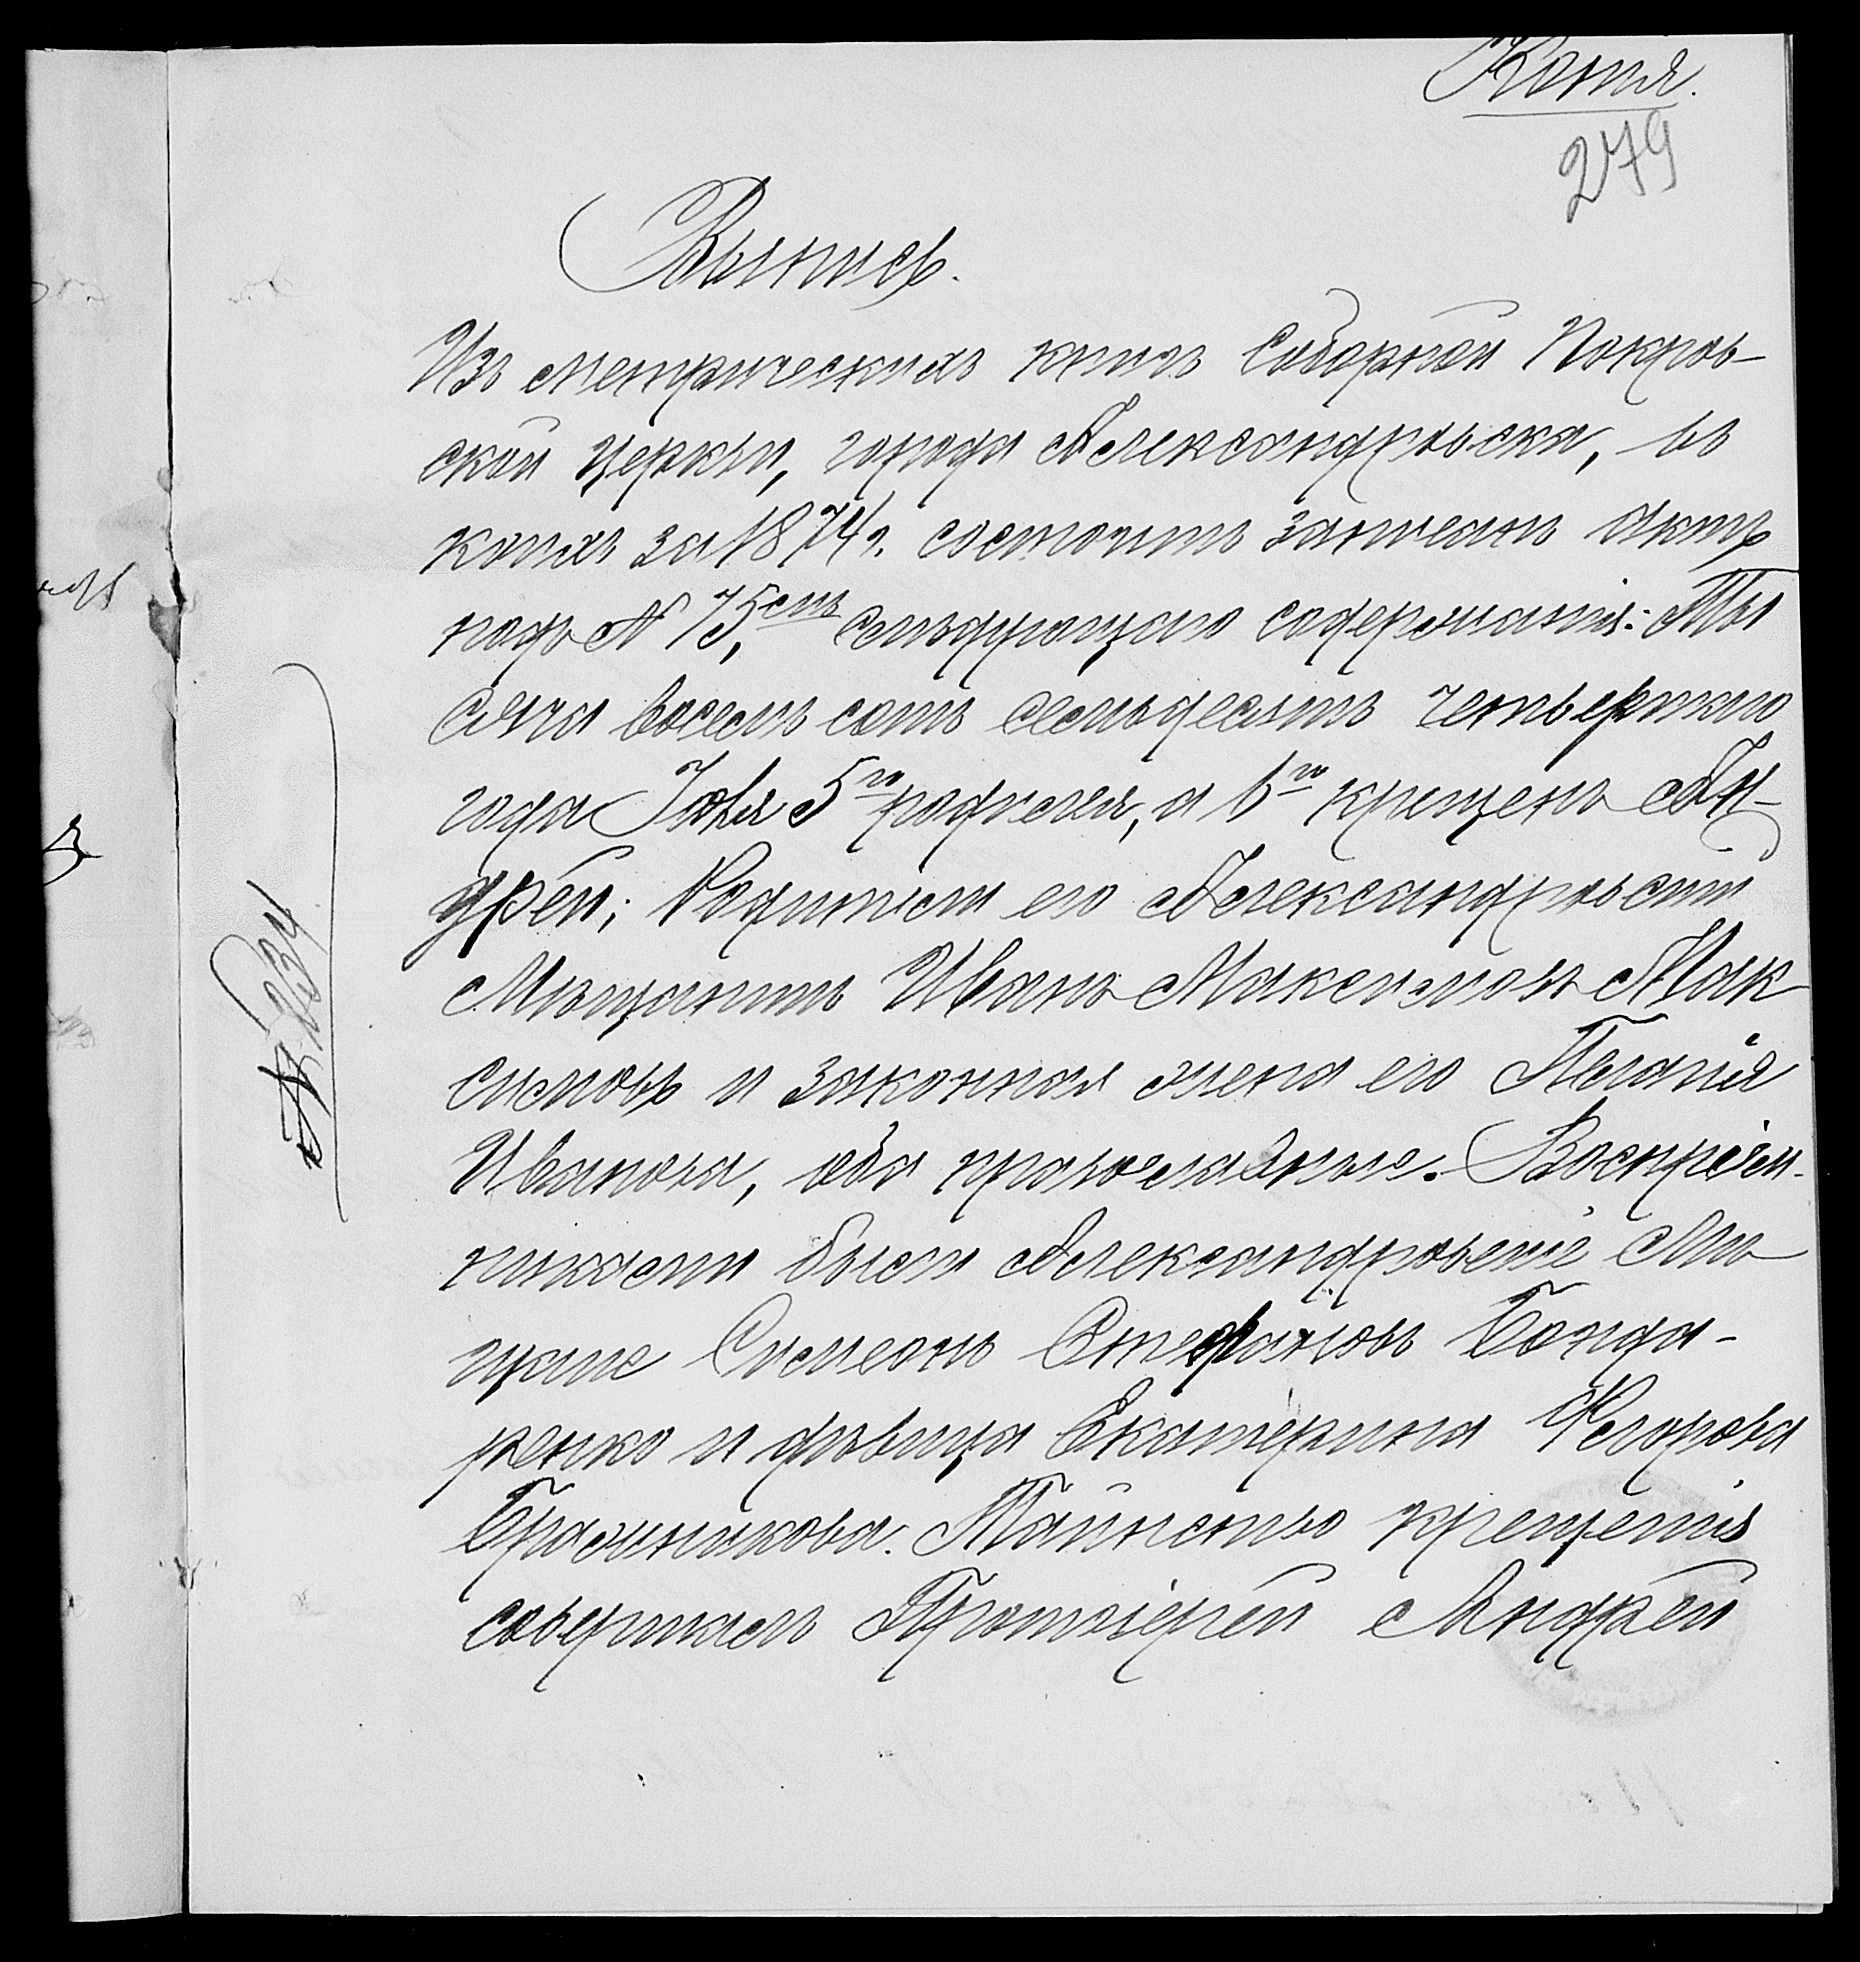 Копия.
279
Выпись.
Изъ метрическихъ книгъ Соборной Покров-
ской церкви, города Александровска, въ
коихъ за 1874 г. состоитъ записанъ актъ
подъ № 75, слѣдующаго содержанія: Ты
сяча восемь сотъ семьдесятъ четвертаго
года Іюля 5го родился, а 6го крещенъ Ан-
дрей; Родители его Александровскій
Мѣщанинъ Иванъ Максимовъ Мак
симовъ и законная жена его Пелагія
Иванова, оба православные. Воспріем-
никами были Александровскіе Мѣ
щане Симеонъ Стефановъ Бонда-
ренко и дѣвица Екатерина Федорова
Бражникова. Таинство крещенія
совершалъ Протоіерей Андрей